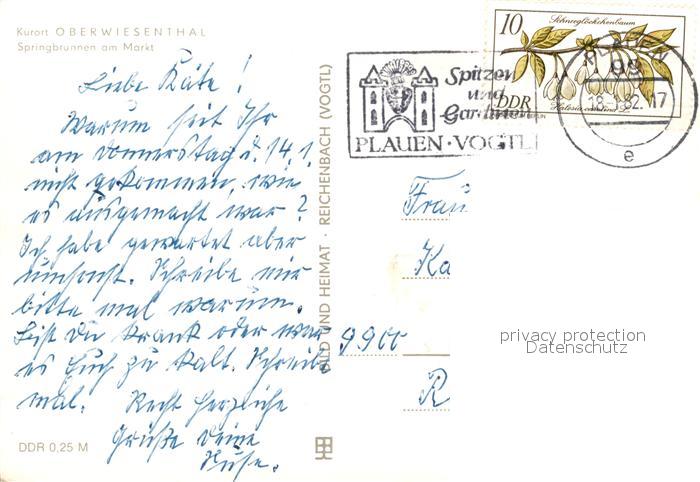 Kurort OBERWIESENTHAL
Springbrunnen am Markt
Liebe Käte!
Warum seit Ihr
am Donnerstag d. 14.1.
nicht gekommen, wie
es ausgemacht war?
Ich habe gewartet aber
umsonst. Schreibe mir
bitte mal warum.
Bist Du krank oder war
es Euch zu kalt. Schreibe
mal. Recht herzliche
Grüße Deine
DDR 0,25 M
BILD UND HEIMAT · REICHENBACH (VOGTL)
Spitzen
und
Gardinen
PLAUEN · VOGTL
10
Schneeglöckchenbaum
DDR
99
18.1.82.17
e
Frau
Ka
9900
R
privacy protection
Datenschutz